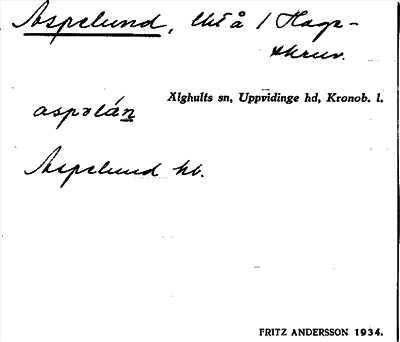 Aspelund, lht å 1 Haga-
skruv.
Älghults sn, Uppvidinge hd, Kronob. l.
aspəlán
Aspelund hb.
FRITZ ANDERSSON 1934.